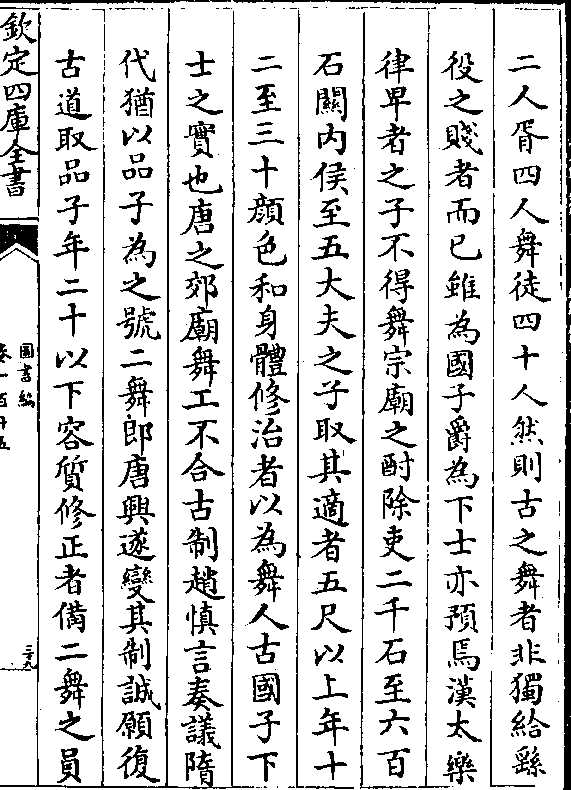 二人胥四人舞徒四十人然則古之舞者非獨給繇
役之賤者而已雖為國子爵為下士亦預焉漢太樂
律早者之子不得舞宗廟之酎除吏二千石至六百
石關内侯至五大夫之子取其適者五尺以上年十
二至三十顔色和身體修治者以為舞人古國子下
士之實也唐之郊廟舞工不合古制趙慎言奏議隋
代猶以品子為之號二舞郎唐興遂變其制誠願復
古道取品子年二十以下容質修正者備二舞之員
欽定四庫全書
圖書編
卷一百十五
二十九